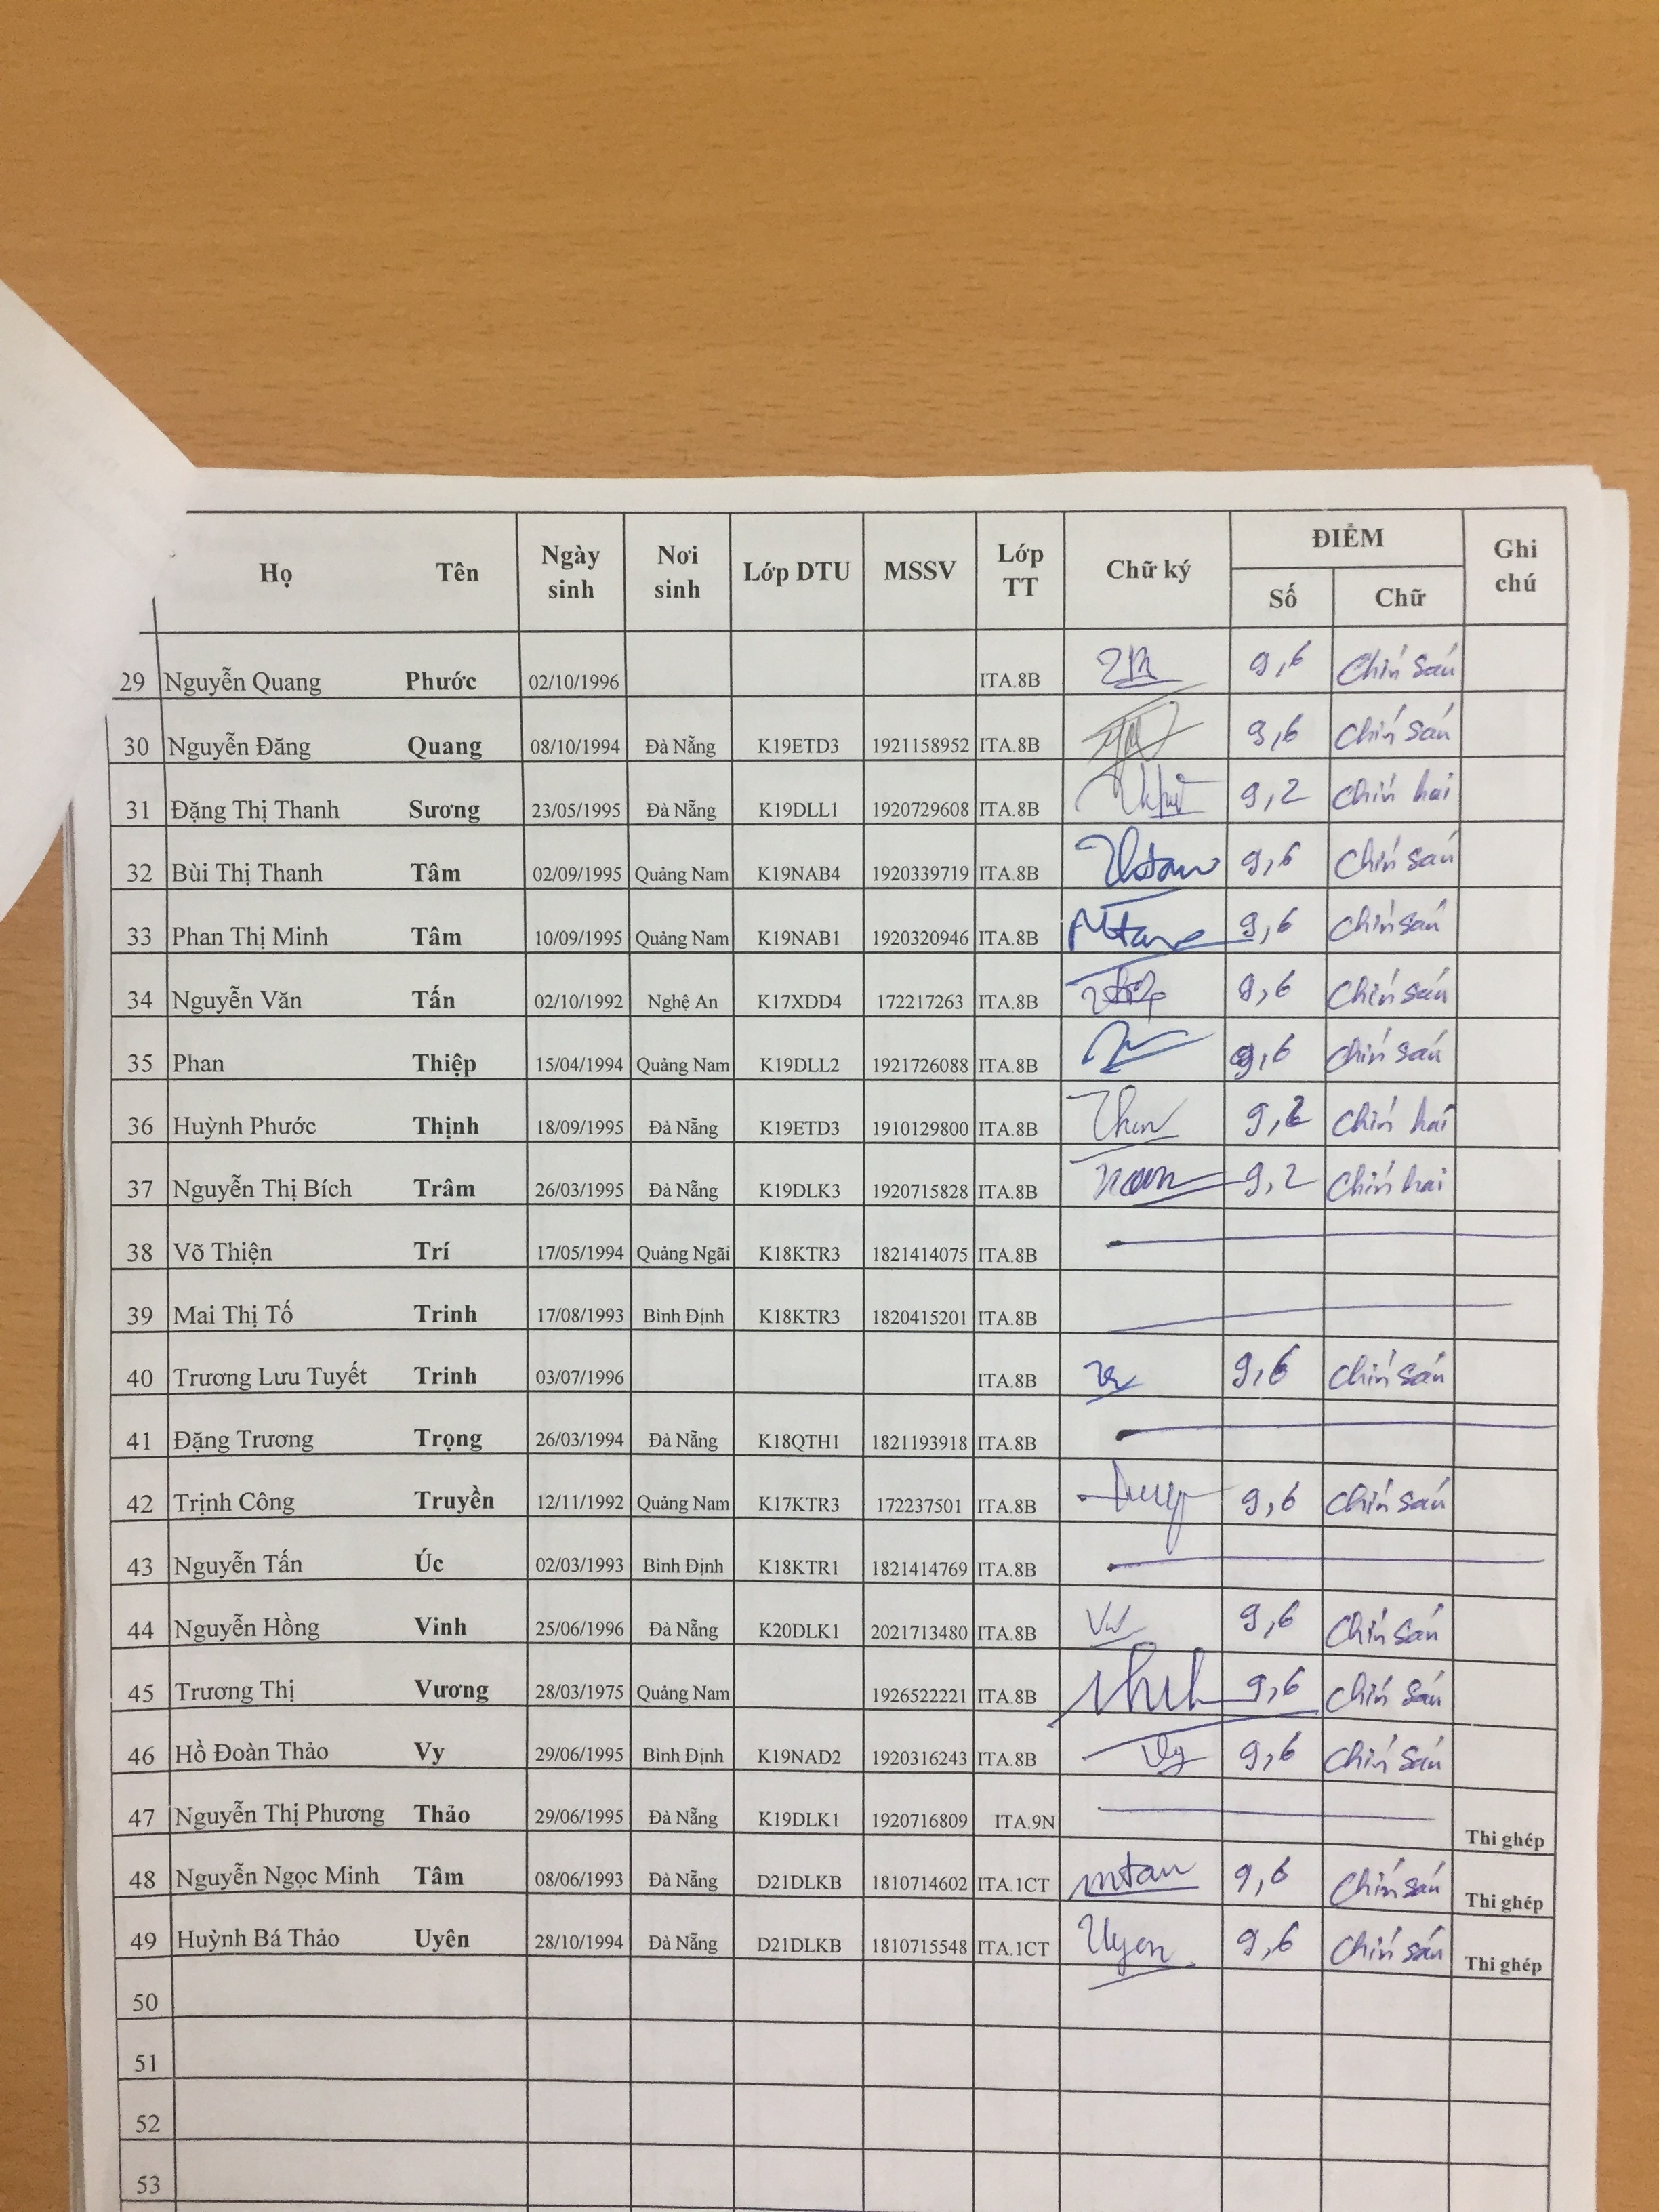 Họ Tên Ngày sinh Nơi sinh Lớp DTU MSSV Lớp TT Chữ ký ĐIỂM Số Chữ Ghi chú
29 Nguyễn Quang Phước 02/10/1996 ITA.8B 9,6 Chín sáu
30 Nguyễn Đăng Quang 08/10/1994 Đà Nẵng K19ETD3 1921158952 ITA.8B 9,6 Chín sáu
31 Đặng Thị Thanh Sương 23/05/1995 Đà Nẵng K19DLL1 1920729608 ITA.8B 9,2 Chín hai
32 Bùi Thị Thanh Tâm 02/09/1995 Quảng Nam K19NAB4 1920339719 ITA.8B 9,6 Chín sáu
33 Phan Thị Minh Tâm 10/09/1995 Quảng Nam K19NAB1 1920320946 ITA.8B 9,6 Chín sáu
34 Nguyễn Văn Tấn 02/10/1992 Nghệ An K17XDD4 172217263 ITA.8B 9,6 Chín sáu
35 Phan Thiệp 15/04/1994 Quảng Nam K19DLL2 1921726088 ITA.8B 9,6 Chín sáu
36 Huỳnh Phước Thịnh 18/09/1995 Đà Nẵng K19ETD3 1910129800 ITA.8B 9,2 Chín hai
37 Nguyễn Thị Bích Trâm 26/03/1995 Đà Nẵng K19DLK3 1920715828 ITA.8B 9,2 Chín hai
38 Võ Thiện Trí 17/05/1994 Quảng Ngãi K18KTR3 1821414075 ITA.8B
39 Mai Thị Tố Trinh 17/08/1993 Bình Định K18KTR3 1820415201 ITA.8B
40 Trương Lưu Tuyết Trinh 03/07/1996 ITA.8B 9,6 Chín sáu
41 Đặng Trương Trọng 26/03/1994 Đà Nẵng K18QTH1 1821193918 ITA.8B
42 Trịnh Công Truyền 12/11/1992 Quảng Nam K17KTR3 172237501 ITA.8B 9,6 Chín sáu
43 Nguyễn Tấn Úc 02/03/1993 Bình Định K18KTR1 1821414769 ITA.8B
44 Nguyễn Hồng Vinh 25/06/1996 Đà Nẵng K20DLK1 2021713480 ITA.8B 9,6 Chín sáu
45 Trương Thị Vương 28/03/1975 Quảng Nam 1926522221 ITA.8B 9,6 Chín sáu
46 Hồ Đoàn Thảo Vy 29/06/1995 Bình Định K19NAD2 1920316243 ITA.8B Vy 9,6 Chín sáu
47 Nguyễn Thị Phương Thảo 29/06/1995 Đà Nẵng K19DLK1 1920716809 ITA.9N Thi ghép
48 Nguyễn Ngọc Minh Tâm 08/06/1993 Đà Nẵng D21DLKB 1810714602 ITA.1CT mtam 9,6 Chín sáu Thi ghép
49 Huỳnh Bá Thảo Uyên 28/10/1994 Đà Nẵng D21DLKB 1810715548 ITA.1CT Uyen 9,6 Chín sáu Thi ghép
50
51
52
53